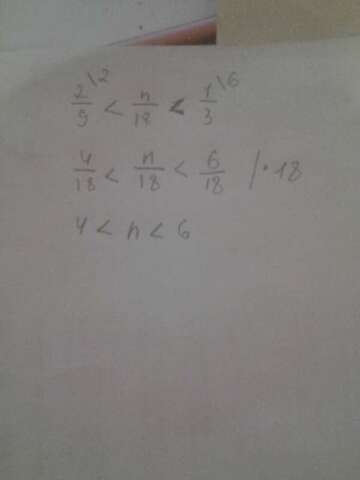 2/9 \2 < n/18 < 1/3 \6
4/18 < n/18 < 6/18 /·18
4 < n < 6